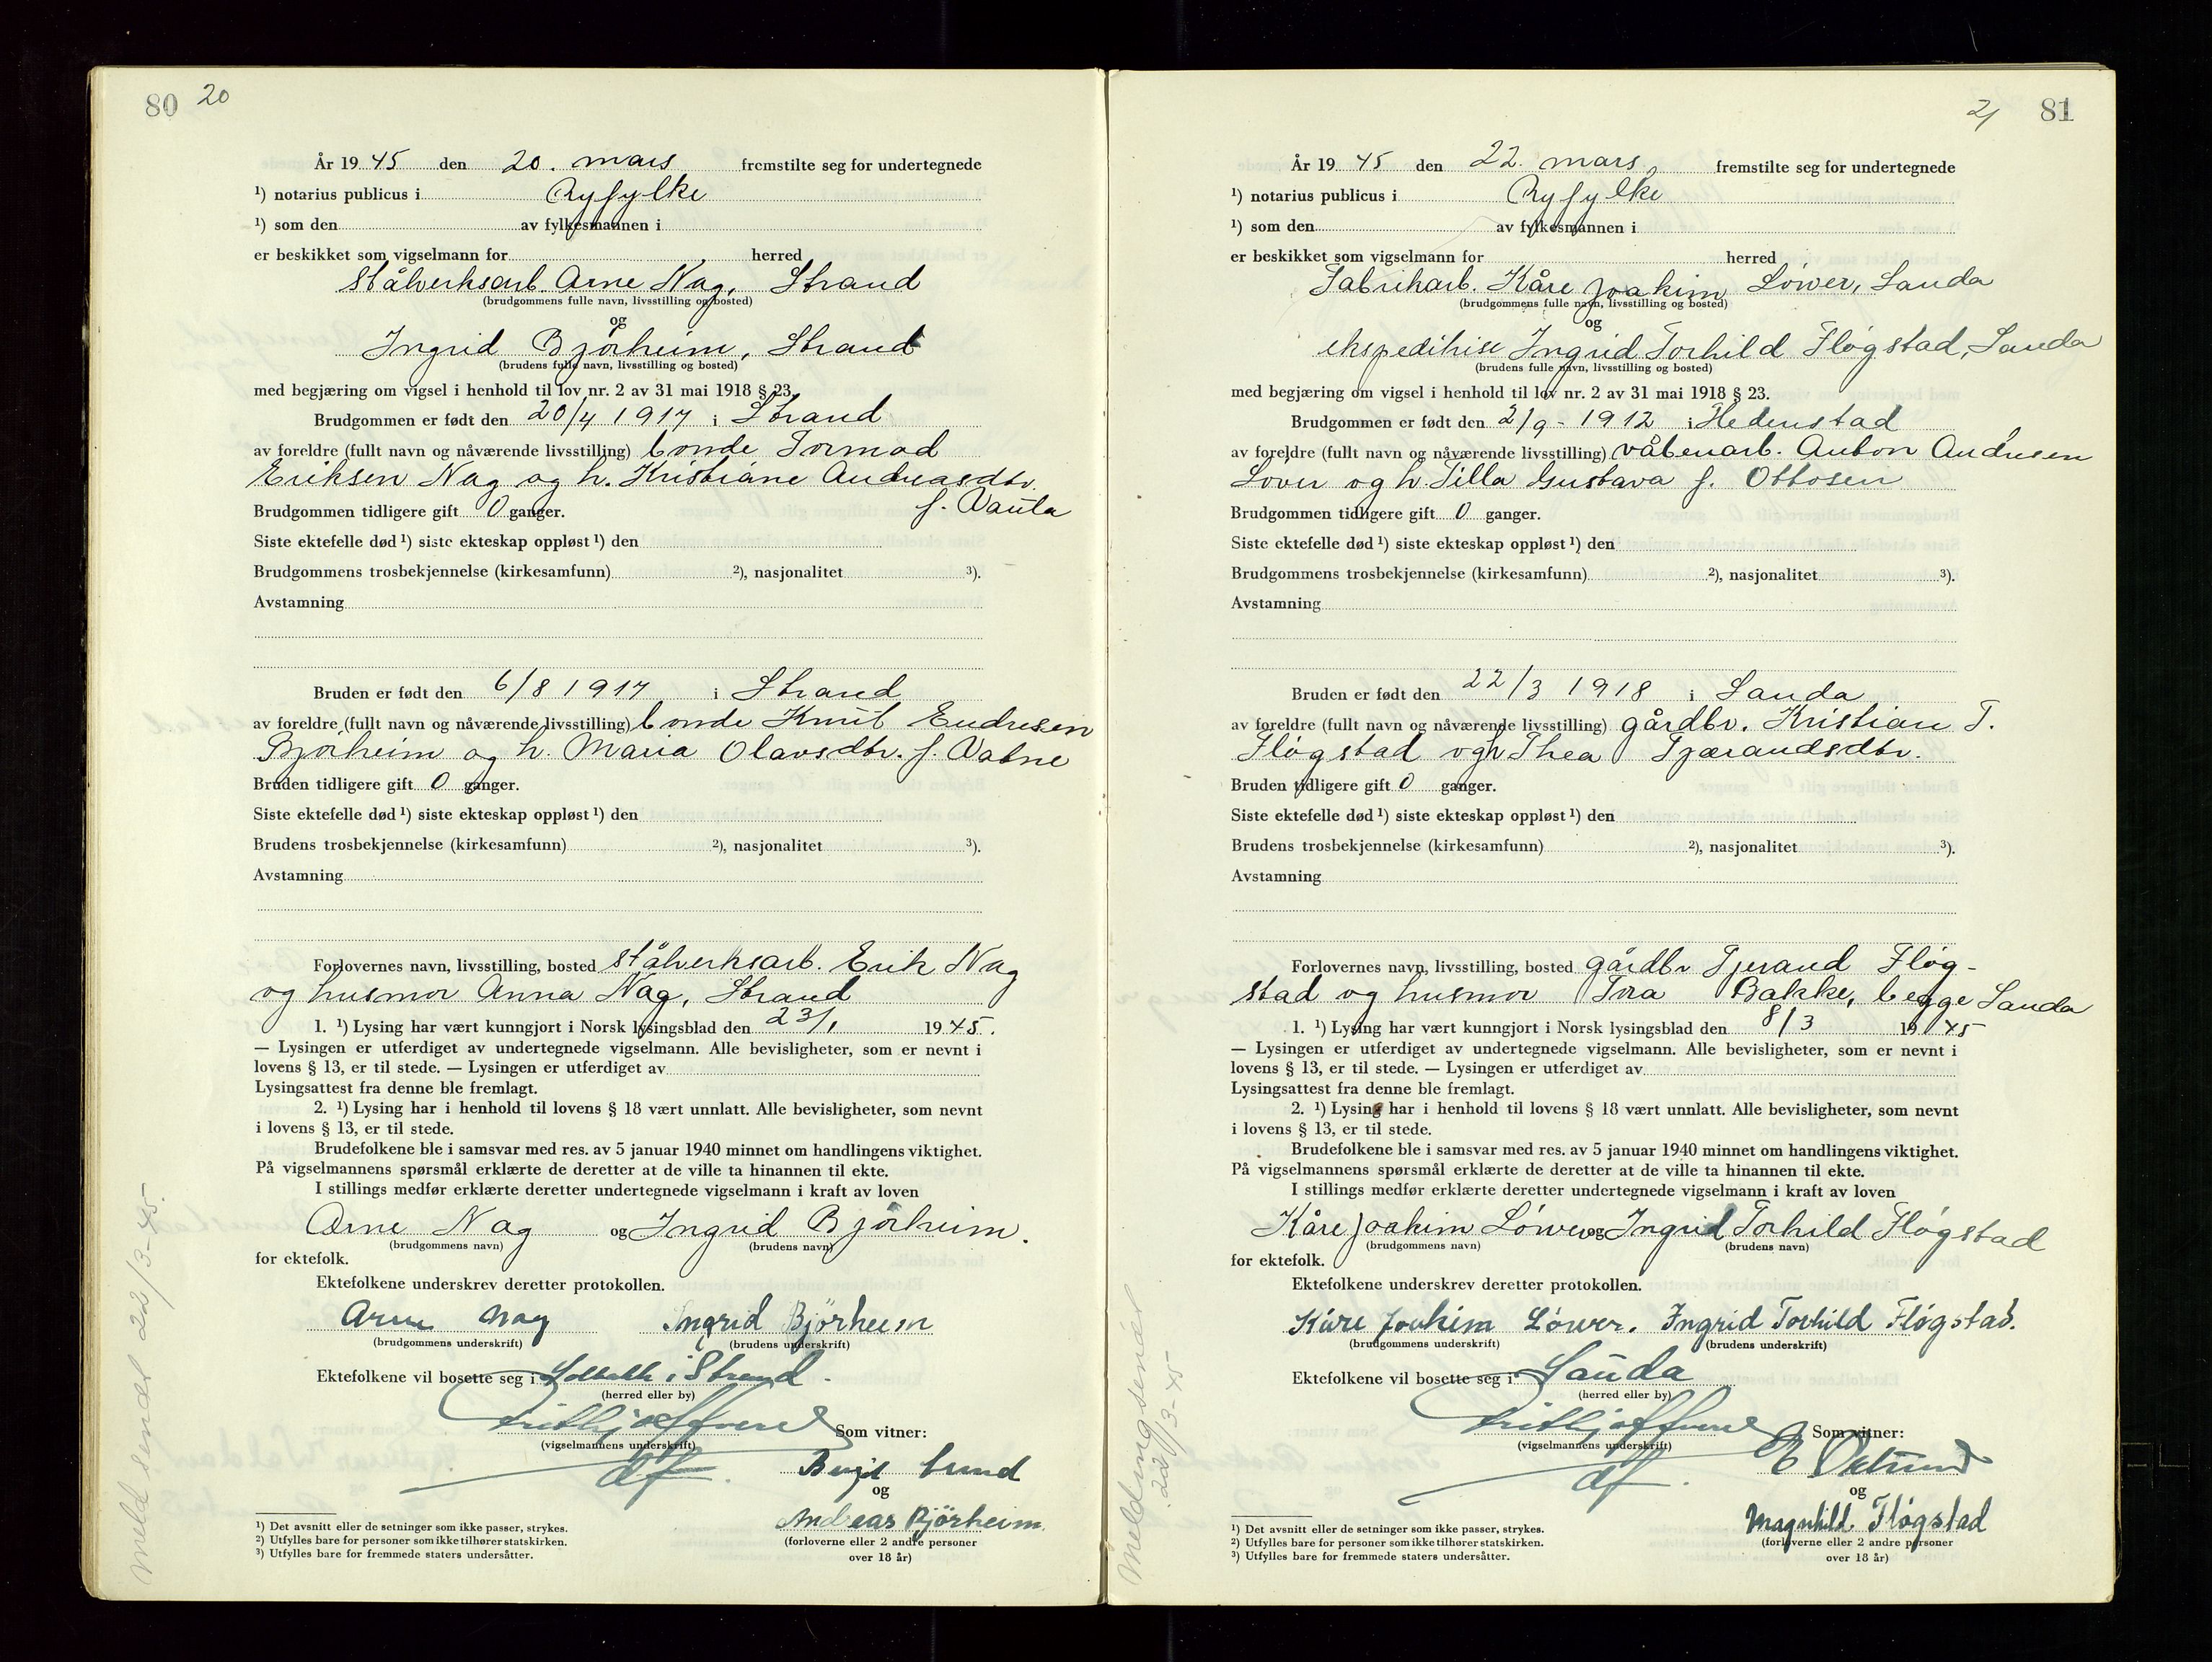 80 20
År 19 45 den 20. mars fremstilte seg for undertegnede
¹) notarius publicus i Ryfylke
¹) som den av fylkesmannen i
er beskikket som vigselmann for herred
Stålverksarb. Arne Nag, Strand
(brudgommens fulle navn, livsstilling og bosted)
og
Ingrid Bjørheim, Strand
(brudens fulle navn, livsstilling og bosted)
med begjæring om vigsel i henhold til lov nr. 2 av 31 mai 1918 § 23.
Brudgommen er født den 20/4 1917 i Strand
av foreldre (fullt navn og nåværende livsstilling) bonde Tormod
Eriksen Nag og h. Kristiane Andreasdtr.
Brudgommen tidligere gift 0 ganger. f. Vaula
Siste ektefelle død ¹) siste ekteskap oppløst ¹) den
Brudgommens trosbekjennelse (kirkesamfunn) ²), nasjonalitet ³).
Avstamning
Bruden er født den 6/8 1917 i Strand
av foreldre (fullt navn og nåværende livsstilling) bonde Knut Endresen
Bjørheim og h. Maria Olavsdtr. f. Vatne
Bruden tidligere gift 0 ganger.
Siste ektefelle død ¹) siste ekteskap oppløst ¹) den
Brudens trosbekjennelse (kirkesamfunn) ²), nasjonalitet ³).
Avstamning
Forlovernes navn, livsstilling, bosted stålverksarb. Erik Nag
og husmor Anna Nag, Strand
1. ¹) Lysing har vært kunngjort i Norsk lysingsblad den 23/1 19 45.
— Lysingen er utferdiget av undertegnede vigselmann. Alle bevisligheter, som er nevnt i
lovens § 13, er til stede. — Lysingen er utferdiget av
Lysingsattest fra denne ble fremlagt.
2. ¹) Lysing har i henhold til lovens § 18 vært unnlatt. Alle bevisligheter, som nevnt
i lovens § 13, er til stede.
Brudefolkene ble i samsvar med res. av 5 januar 1940 minnet om handlingens viktighet.
På vigselmannens spørsmål erklærte de deretter at de ville ta hinannen til ekte.
I stillings medfør erklærte deretter undertegnede vigselmann i kraft av loven
Arne Nag og Ingrid Bjørheim.
(brudgommens navn) (brudens navn)
for ektefolk.
Ektefolkene underskrev deretter protokollen.
Arne Nag Ingrid Bjørheim
(brudgommens underskrift) (brudens underskrift)
Ektefolkene vil bosette seg i i Strand.
(herred eller by)
Som vitner:
(vigselmannens underskrift)
df.
og
Andreas Bjørheim
(forloverne eller 2 andre personer
over 18 år)
¹) Det avsnitt eller de setninger som ikke passer, strykes.
²) Utfylles bare for personer som ikke tilhører statskirken.
³) Utfylles bare for fremmede staters undersåtter.
meld sendt 22/3-45.
21 81
År 19 45 den 22. mars fremstilte seg for undertegnede
¹) notarius publicus i Ryfylke
¹) som den av fylkesmannen i
er beskikket som vigselmann for herred
Fabrikarb. Kåre Joakim Løwer, Sauda
(brudgommens fulle navn, livsstilling og bosted)
og
ekspeditrise Ingrid Torhild Fløgstad, Sauda
(brudens fulle navn, livsstilling og bosted)
med begjæring om vigsel i henhold til lov nr. 2 av 31 mai 1918 § 23.
Brudgommen er født den 2/9 - 1912 i Hedenstad
av foreldre (fullt navn og nåværende livsstilling) våbenarb. Anton Andresen
Løver og h. Tilla Gustava f. Ottosen
Brudgommen tidligere gift 0 ganger.
Siste ektefelle død ¹) siste ekteskap oppløst ¹) den
Brudgommens trosbekjennelse (kirkesamfunn) ²), nasjonalitet ³).
Avstamning
Bruden er født den 22/3 1918 i Sauda
av foreldre (fullt navn og nåværende livsstilling) gårdbr. Kristian T.
Fløgstad og h Thea Tjærandsdtr.
Bruden tidligere gift 0 ganger.
Siste ektefelle død ¹) siste ekteskap oppløst ¹) den
Brudens trosbekjennelse (kirkesamfunn) ²), nasjonalitet ³).
Avstamning
Forlovernes navn, livsstilling, bosted gårdbr Tjerand Fløg-
stad og husmor Tora Bakke, begge Sauda
1. ¹) Lysing har vært kunngjort i Norsk lysingsblad den 8/3 19 45
— Lysingen er utferdiget av undertegnede vigselmann. Alle bevisligheter, som er nevnt i
lovens § 13, er til stede. — Lysingen er utferdiget av
Lysingsattest fra denne ble fremlagt.
2. ¹) Lysing har i henhold til lovens § 18 vært unnlatt. Alle bevisligheter, som nevnt
i lovens § 13, er til stede.
Brudefolkene ble i samsvar med res. av 5 januar 1940 minnet om handlingens viktighet.
På vigselmannens spørsmål erklærte de deretter at de ville ta hinannen til ekte.
I stillings medfør erklærte deretter undertegnede vigselmann i kraft av loven
Kåre Joakim Løwer og Ingrid Torhild Fløgstad
(brudgommens navn) (brudens navn)
for ektefolk.
Ektefolkene underskrev deretter protokollen.
Kåre Joakim Løwer. Ingrid Torhild Fløgstad.
(brudgommens underskrift) (brudens underskrift)
Ektefolkene vil bosette seg i Sauda
(herred eller by)
Som vitner:
(vigselmannens underskrift)
df.
og
Magnhild Fløgstad
(forloverne eller 2 andre personer
over 18 år)
¹) Det avsnitt eller de setninger som ikke passer, strykes.
²) Utfylles bare for personer som ikke tilhører statskirken.
³) Utfylles bare for fremmede staters undersåtter.
Melding sendt
22/3-45